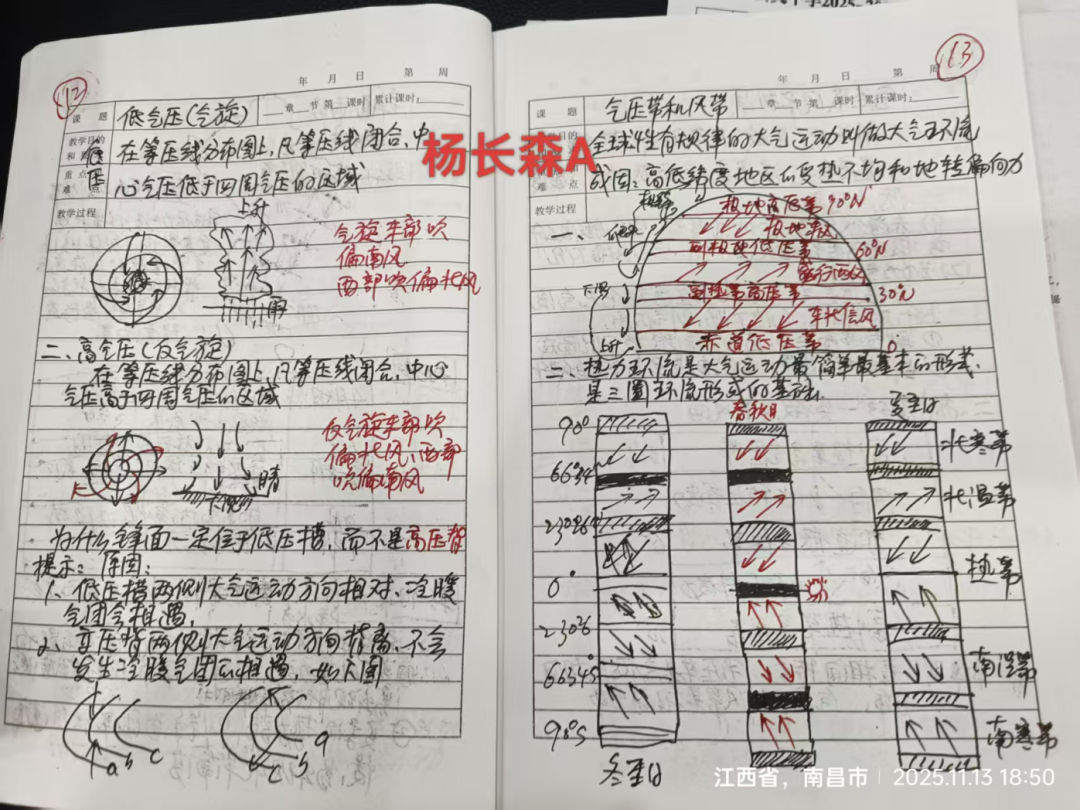 12
年 月 日 第 周
课 题 低气压(气旋) 章 节 第 课时 累计课时:
教学目的
低压
重 点
难 点
在等压线分布图上,凡等压线闭合,中
心气压低于四周气压的区域
教学过程
上升
雨
气旋东部吹
偏南风
西部吹偏北风
二、高气压(反气旋)
在等压线分布图上,凡等压线闭合,中心
气压高于四周气压的区域
晴
下沉
反气旋东部吹
偏北风,西部
吹偏南风
为什么锋面一定位于低压槽,而不是高压脊
提示:原因:
1、低压槽两侧大气运动方向相对,冷暖
气团会相遇,
2、高压脊两侧大气运动方向背离,不会
发生冷暖气团的相遇,如下图
a b c
a b c
杨长森A
2025
13
年 月 日 第 周
课 题 气压带和风带 章 节 第 课时 累计课时:
教学目的
和
重 点
难 点
全球性有规律的大气运动叫做大气环流
成因:高低纬度地区的受热不均和地转偏向力
教学过程
一、
极地高压带 90°N
极地东风
副极地低压带 60°N
盛行西风
下沉 副热带高压带 30°N
东北信风
上升 赤道低压带 0
二、热力环流是大气运动最简单最基本的形式,
是三圈环流形成的基础.
春秋日 夏至日
90° 北寒带
6634
北温带
2326
0° 热带
2326
66345 南温带
90°S 南寒带
冬至日
江西省,南昌市 | 2025.11.13 18:50